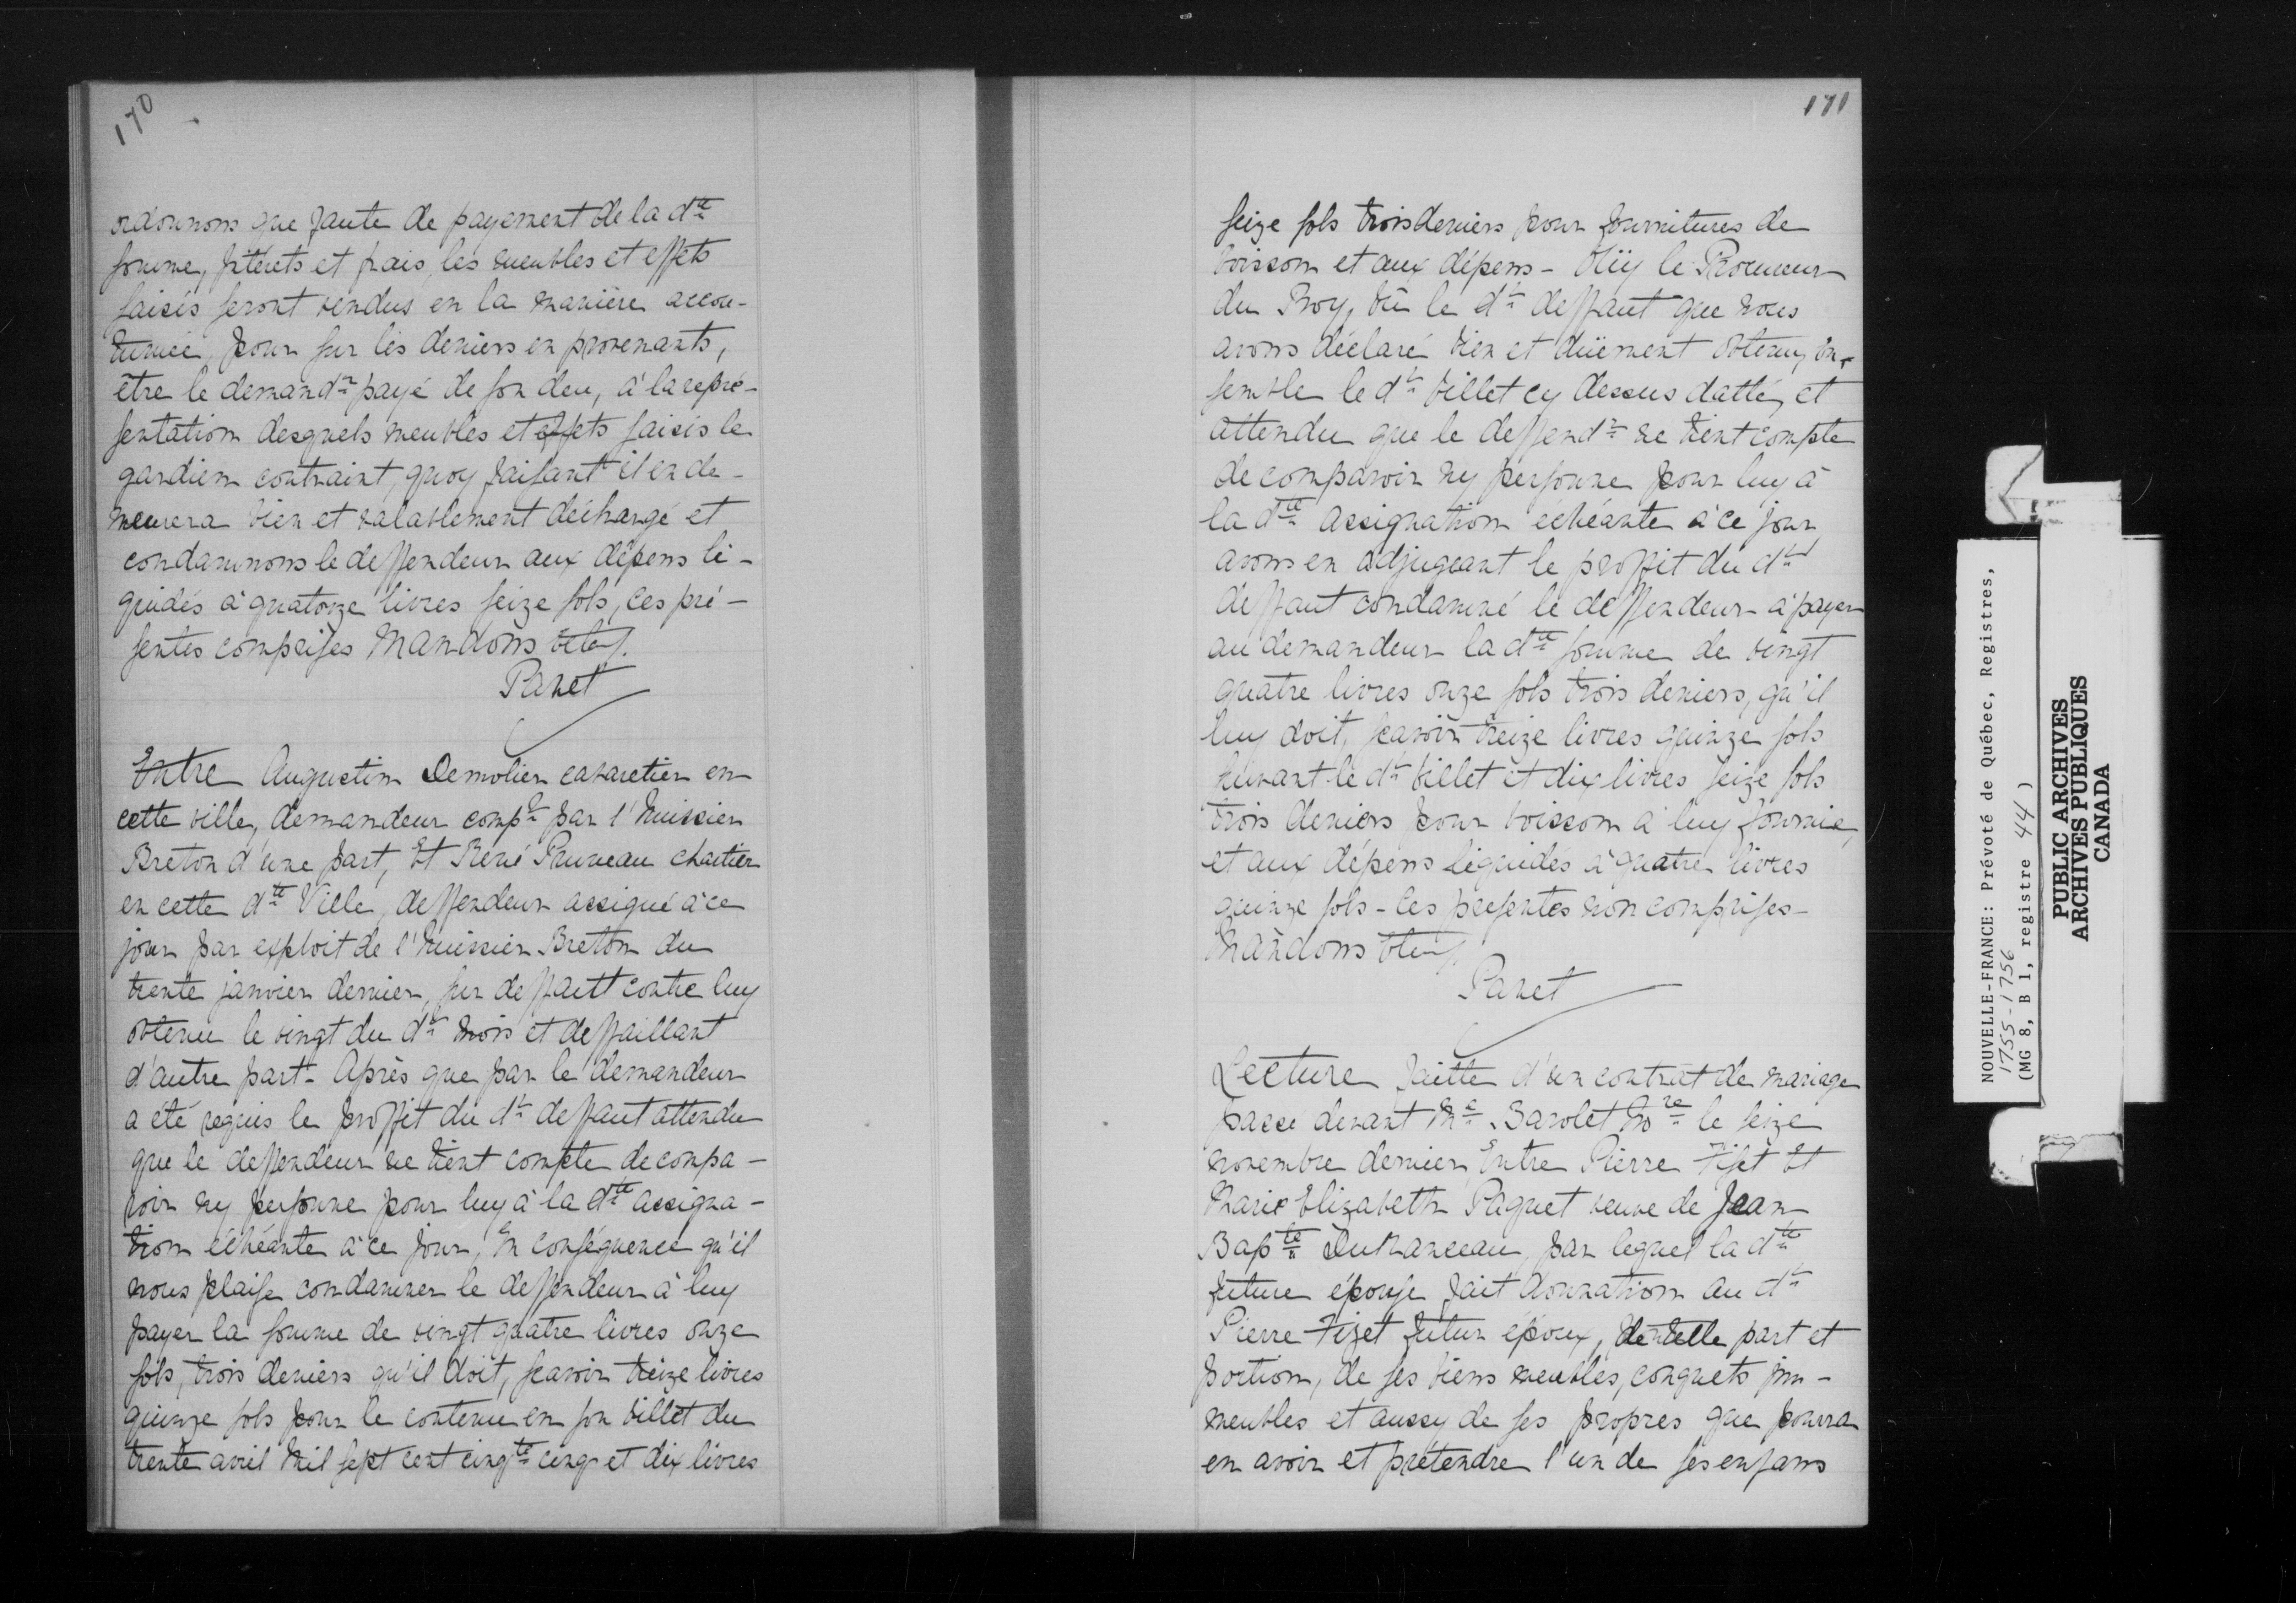 170
ordonnons que faute de payement de la dte
somme, Jtérets et frais, les meubles et effets
saisis seront vendus en la manière accou-
tumée, pour sur les deniers en provenants,
être le demandr payé de son deu, à la repré-
sentation desquels meubles et effets saisis le
gardien contraint, quoy faisant il en de-
meurera bien et valablement déchargé et
condamnons le deffendeur aux dépens li-
quidés à quatorze livres seize sols, ces pré-
sentes comprises Mandons &c
Panet
Entre Augustin Demolier cabaretier en
cette ville, demandeur compt par l'huissier
Breton d'une part, Et René Pruneau chartier
en cette dte Ville, deffendeur assigné à ce
jour par exploit de l'huissier Breton du
trente janvier dernier, sur deffautt contre luy
obtenu le vingt du dt mois et deffaillant
d'autre part - Après que par le demandeur
a été requis le proffit du dt deffaut attendu
que le deffendeur ne tient compte de compa-
roir ny personne pour luy à la dte assigna-
tion échéante à ce jour, En conséquence qu'il
nous plaise condamner le deffendeur à luy
payer la somme de vingt quatre livres onze
sols, trois deniers qu'il doit, scavoir treize livres
quinze sols pour le contenu en son billet du
trente avril mil sept cent cinqte cinq et dix livres
171
seize sols trois deniers pour fournitures de
boisson et aux dépens - Oüy le Procureur
du Roy, vû le dt deffaut que nous
avons déclaré bien et düement obtenu, en-
semble le dt billet cy dessus datté, et
attendu que le deffendr ne tient compte
de comparoir ny personne pour luy à
la dte assignation échéante à ce jour
avons en adjugeant le proffit du dt
deffaut condamné le deffendeur à payer
au demandeur la dte somme de vingt
quatre livres onze sols trois deniers, qu'il
luy doit, scavoir treize livres quinze sols
suivant le dt billet et dix livres seize sols
trois deniers pour boisson à luy fournie,
et aux dépens liquidés à quatre livres
quinze sols - les presentes non comprises -
Mandons &c
Panet
Lecture faitte d'un contrat de mariage
passé devant Me Barolet Nore le seize
novembre dernier, Entre Pierre Fiset Et
Marie Elizabeth Paquet veuve de Jean
Bapte DuRanceau, par lequel la dte
future épouse fait donnation au dt
Pierre Fizet futur époux, de telle part et
portion, de ses biens meubles, conquets im-
meubles et aussy de ses propres que pourra
en avoir et prétendre l'un de ses enfans
NOUVELLE-FRANCE: Prévoté de Québec, Registres,
1755-1756
(MG 8, B 1, registre 44)
PUBLIC ARCHIVES
ARCHIVES PUBLIQUES
CANADA